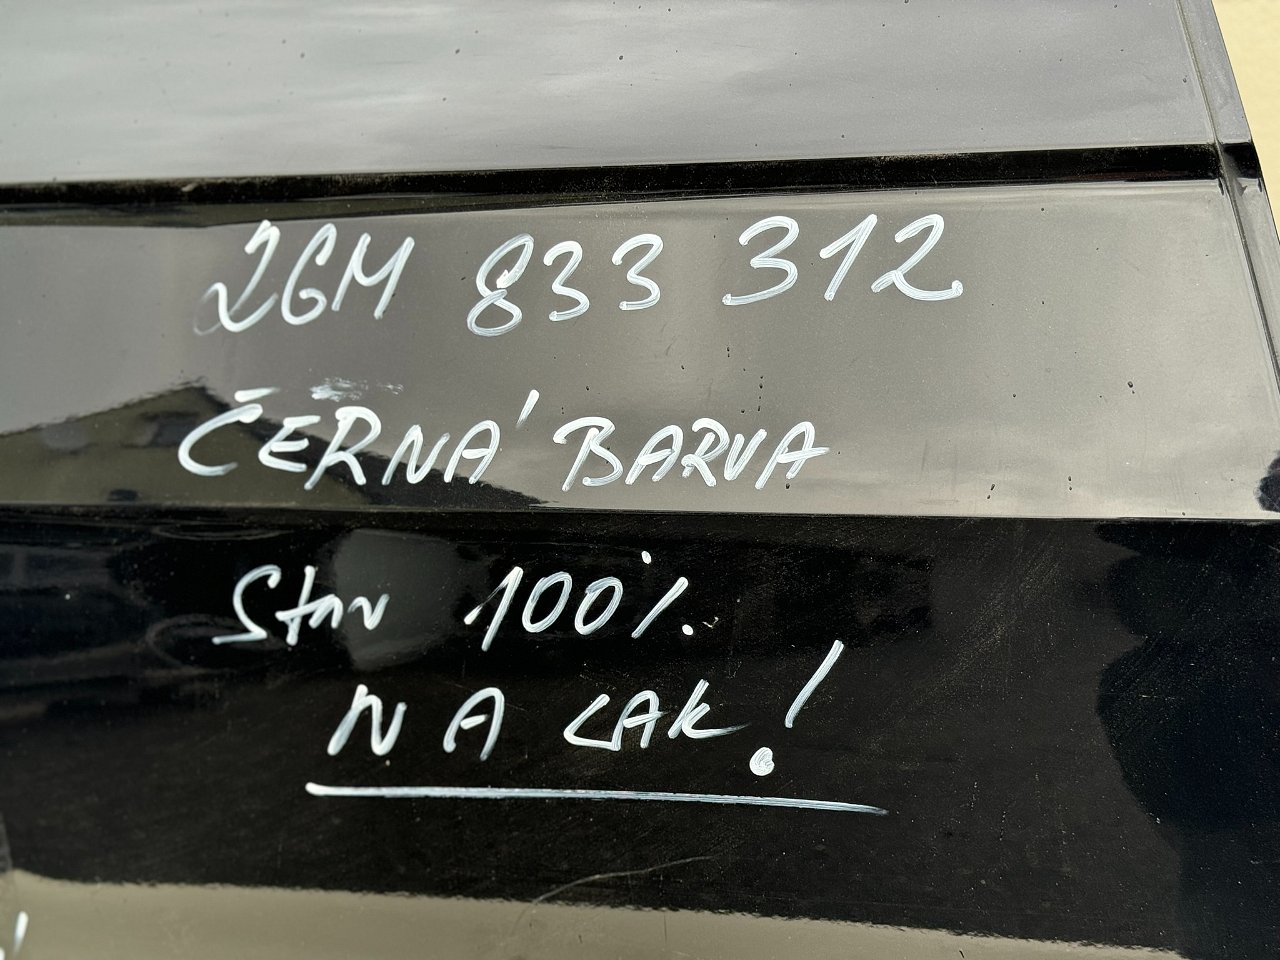 2GM 833 312
ČERNÁ BARVA
Stav 100%
NA LAK!